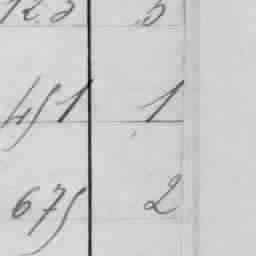 123 3
451 1
675 2